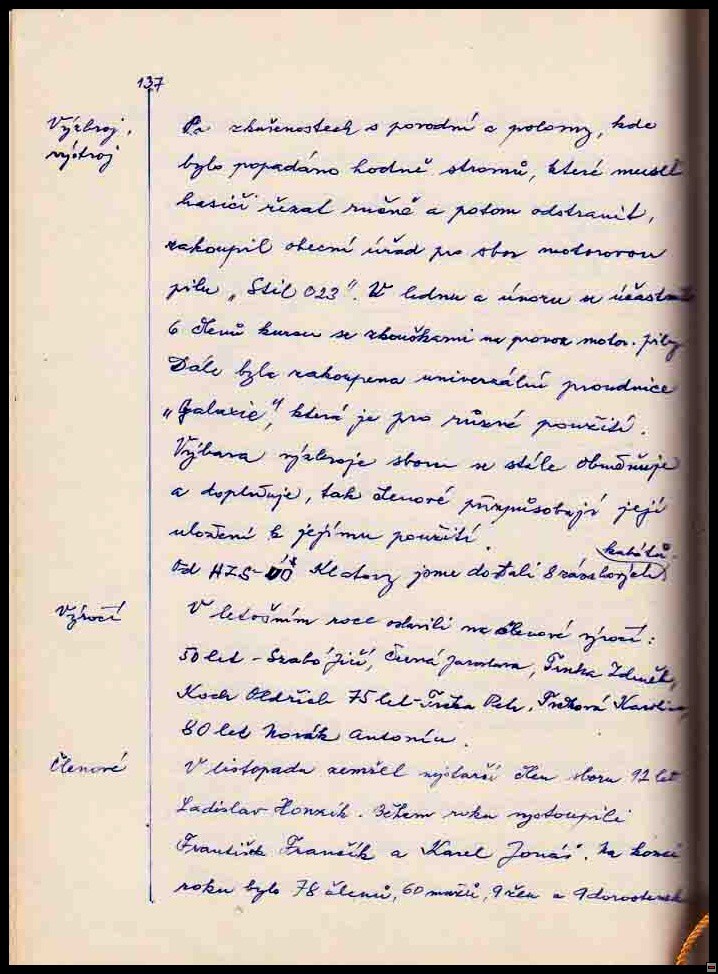 137
Výzbroj,
výstroj
Po zkušenostech s povodní a polomy, kde
bylo popadáno hodně stromů, které museli
hasiči řezat ručně a potom odstranit,
zakoupil obecní úřad pro sbor motorovou
pilu „Stil 023". V lednu a únoru se účastnilo
6 členů kursu se zkouškami na provoz motor. pily
Dále byla zakoupena univerzální proudnice
„Galaxie", která je pro různé použití.
Výbava výzbroje sboru se stále obměňuje
a doplňuje, tak členové přizpůsobují její
uložení k jejímu použití.
Od HZS-ÚO Klatovy jsme dostali 8 zásahových kabátů.
Výročí
V letošním roce oslavili na členové výročí:
50 let - Szabó Jiří, Černá Jaroslava, Trnka Zdeněk,
Koch Oldřich 75 let - Trčka Petr, Trčková Karolina,
80 let Novák Antonín.
Členové
V listopadu zemřel nejstarší člen sboru 92 let
Ladislav Honzík. Během roku vystoupili
František Frančík a Karel Jonáš. Na konci
roku bylo 78 členů, 60 mužů, 9 žen a 9 dorostenek